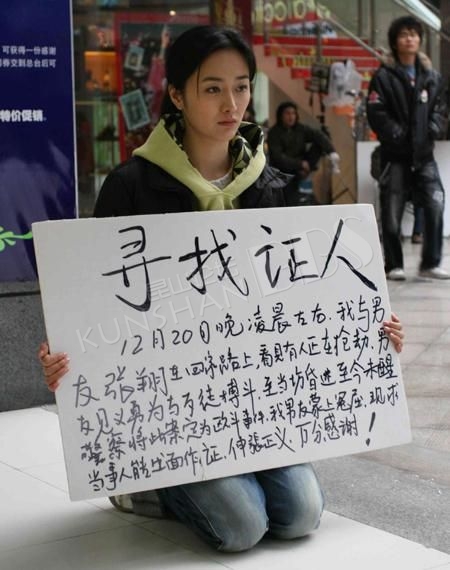 可获得一份感谢
券交到总台后可
特价促销
寻找证人
12月20日晚凌晨左右.我与男
友张翔在四条路上,看具有人正在抢劫,男
友见义勇为与歹徒搏斗.至当场昏迷至今未醒
警察将此案定为殴斗事件.我男友蒙上冤屈.现求
当事人能出面作证.伸张正义.万分感谢!
KUNSHAN BBS